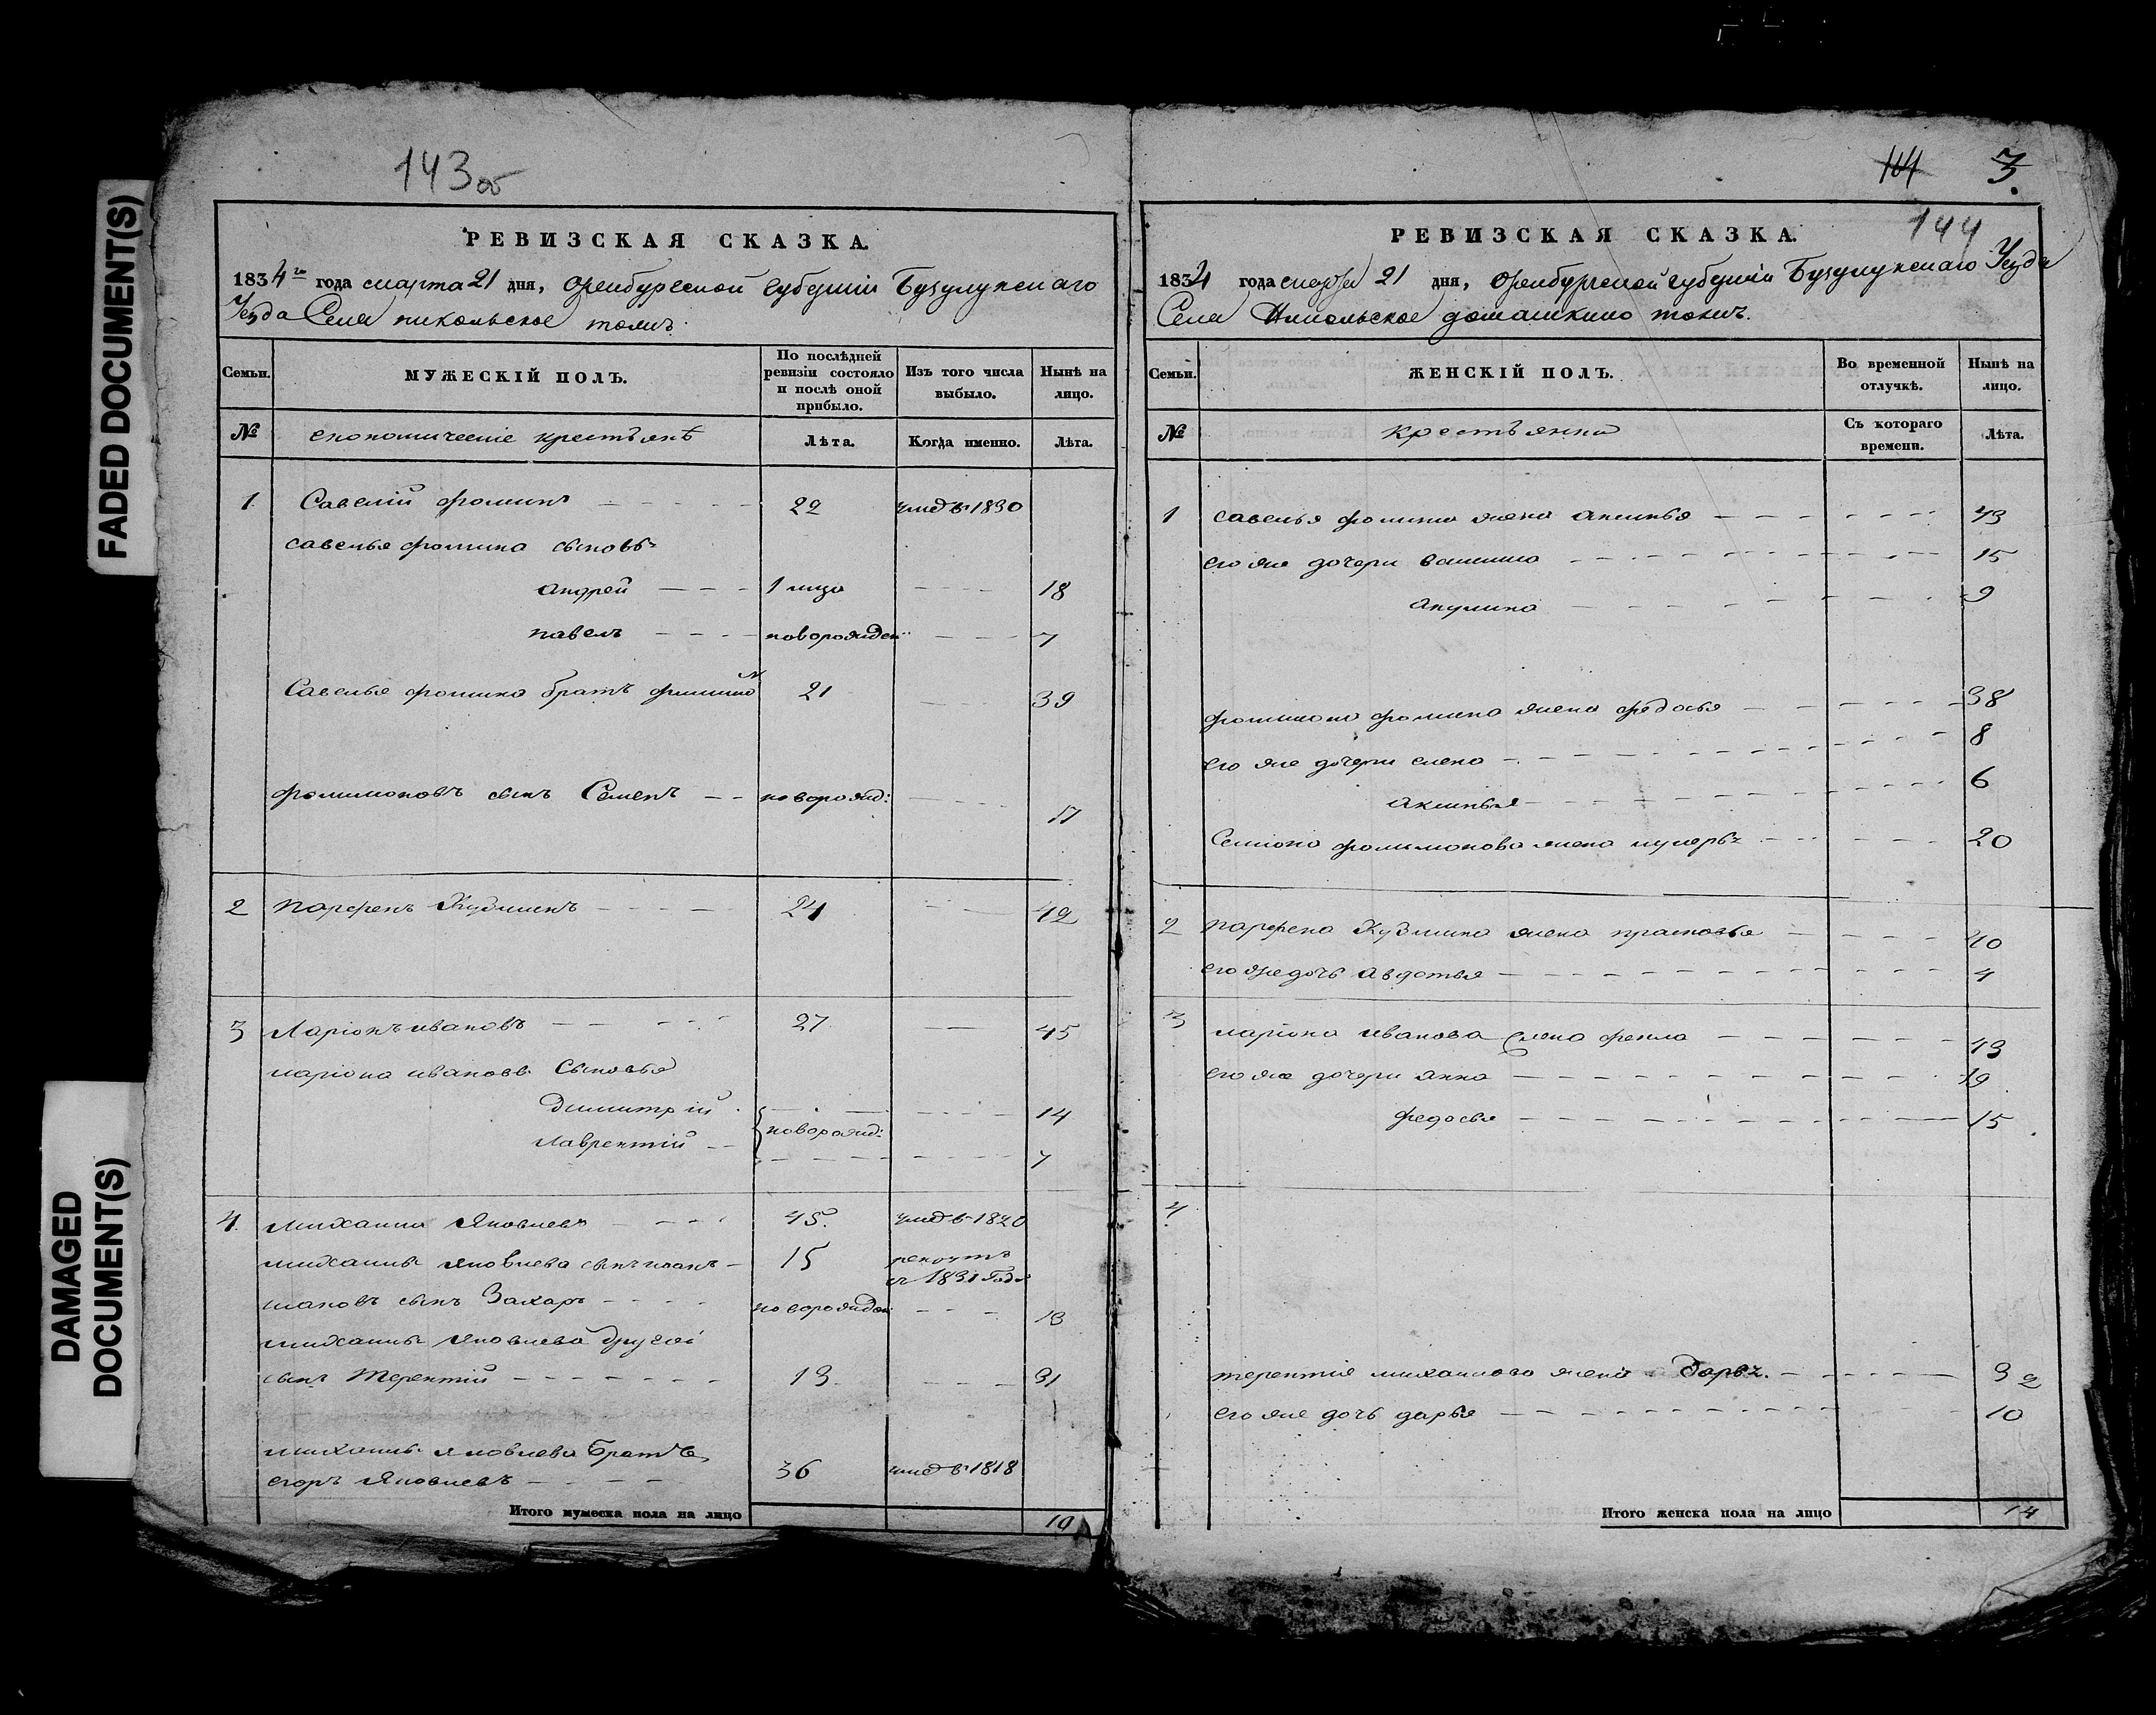 FADED DOCUMENT(S)
DAMAGED
DOCUMENT(S)
143 об
РЕВИЗСКАЯ СКАЗКА.
1834го года марта 21 дня, Оренбургской губернии Бузулукскаго
Уезда Села никольское томъ
Семьи.
МУЖЕСКІЙ ПОЛЪ.
По послѣдней ревизіи состояло и послѣ оной прибыло.
Изъ того числа выбыло.
Нынѣ на лицо.
№
економическіе крестьянѣ
Лѣта.
Когда именно.
Лѣта.
1 Савелій фоминъ 22 умеръ 1830
савелья фомина сыновья
андрей 1 18
павелъ новорожден 7
Савелья фомина братъ 21 39
филимоновъ сынъ Семенъ новорожд: 17
2 парфенъ Кузминъ 24 42
3 Ларіонъ ивановъ 27 45
ларіона иванова Сыновья
димитрій 14
новорожд:
лаврентій 7
4 михаила Яковлевъ 45 умеръ 1820
михаилы яковлева сынъ 15 рекрутъ
1831 года
сынъ Захаръ новорожден 13
михаилы яковлева другой
сынъ Терентій 13 31
михаилы яковлева братъ
егоръ Яковлевъ 36 умеръ 1818
Итого мужеска пола на лицо 10
3.
144
РЕВИЗСКАЯ СКАЗКА.
1834 года марта 21 дня, Оренбургской губерніи Бузулукскаго Уезда
Села Никольское домашкино тожъ.
Семьи.
ЖЕНСКІЙ ПОЛЪ.
Во временной отлучкѣ.
Нынѣ на лицо.
№
крестьянки
Съ котораго времени.
Лѣта.
1 савелья фомина жена аксинья 43
его же дочери 15
акулина 9
филимона фомина жена федосья 38
его же дочери елена 8
аксинья 6
Семіона филимонова жена 20
2 парфена Кузмина жена прасковья 40
его же дочь авдотья 4
3 ларіона иванова жена фекла 43
его же дочери анна 19
федосья 15
4
терентія михаилова жена 32
его же дочь дарья 10
Итого женска пола на лицо 14